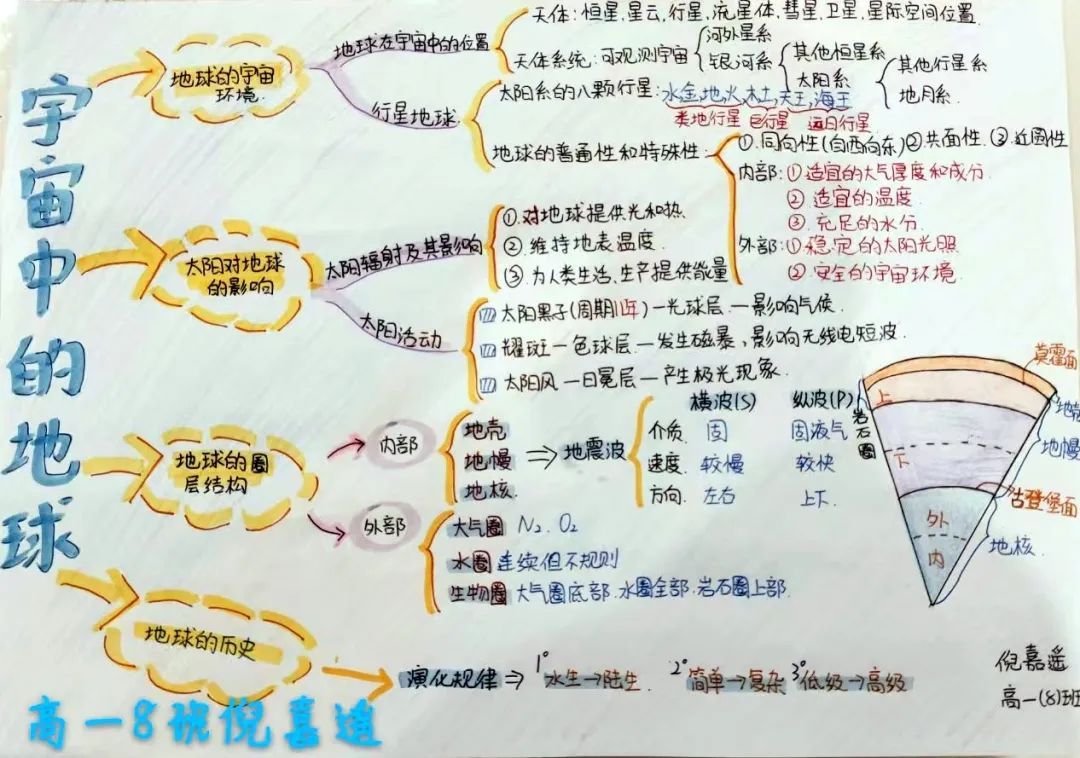 宇宙中的地球
地球的宇宙环境.
地球在宇宙中的位置
天体:恒星,星云,行星,流星体,彗星,卫星,星际空间位置.
天体系统:可观测宇宙
河外星系
银河系
其他恒星系
太阳系
其他行星系
地月系
行星地球
太阳系的八颗行星:水金,地,火,木土,天王,海王
类地行星 巨行星 远日行星
地球的普通性和特殊性:
①.同向性(自西向东)②.共面性.③.近圆性
内部:①适宜的大气厚度和成分.
② 适宜的温度.
③. 充足的水分.
外部:①稳定的太阳光照
② 安全的宇宙环境.
太阳对地球的影响
太阳辐射及其影响
①.对地球提供光和热.
②.维持地表温度.
③.为人类生活,生产提供能量
太阳活动
太阳黑子(周期11年)—光球层—影响气候.
耀斑—色球层—发生磁暴,影响无线电短波.
太阳风—日冕层—产生极光现象.
地球的圈层结构
内部
地壳
地幔
地核.
⇒地震波
横波(S) 纵波(P)
介质. 固 固液气
速度. 较慢 较快
方向. 左右 上下
外部
大气圈 N₂.O₂
水圈 连续但不规则
生物圈 大气圈底部.水圈全部.岩石圈上部.
莫霍面
上
地壳
岩石圈
地幔
下
古登堡面
外
地核.
内
地球的历史
演化规律⇒ 1°水生→陆生. 2°简单→复杂 3°低级→高级
倪嘉遥
高一(8)班
高一8班倪嘉遥